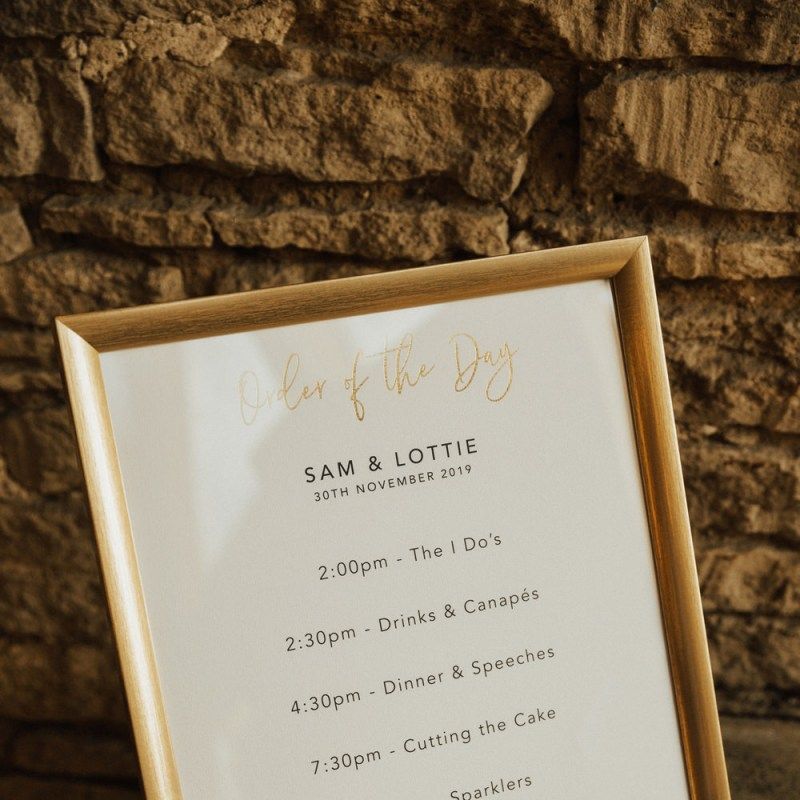 Order of the Day
SAM & LOTTIE
30TH NOVEMBER 2019
2:00pm - The I Do's
2:30pm - Drinks & Canapés
4:30pm - Dinner & Speeches
7:30pm - Cutting the Cake
Sparklers